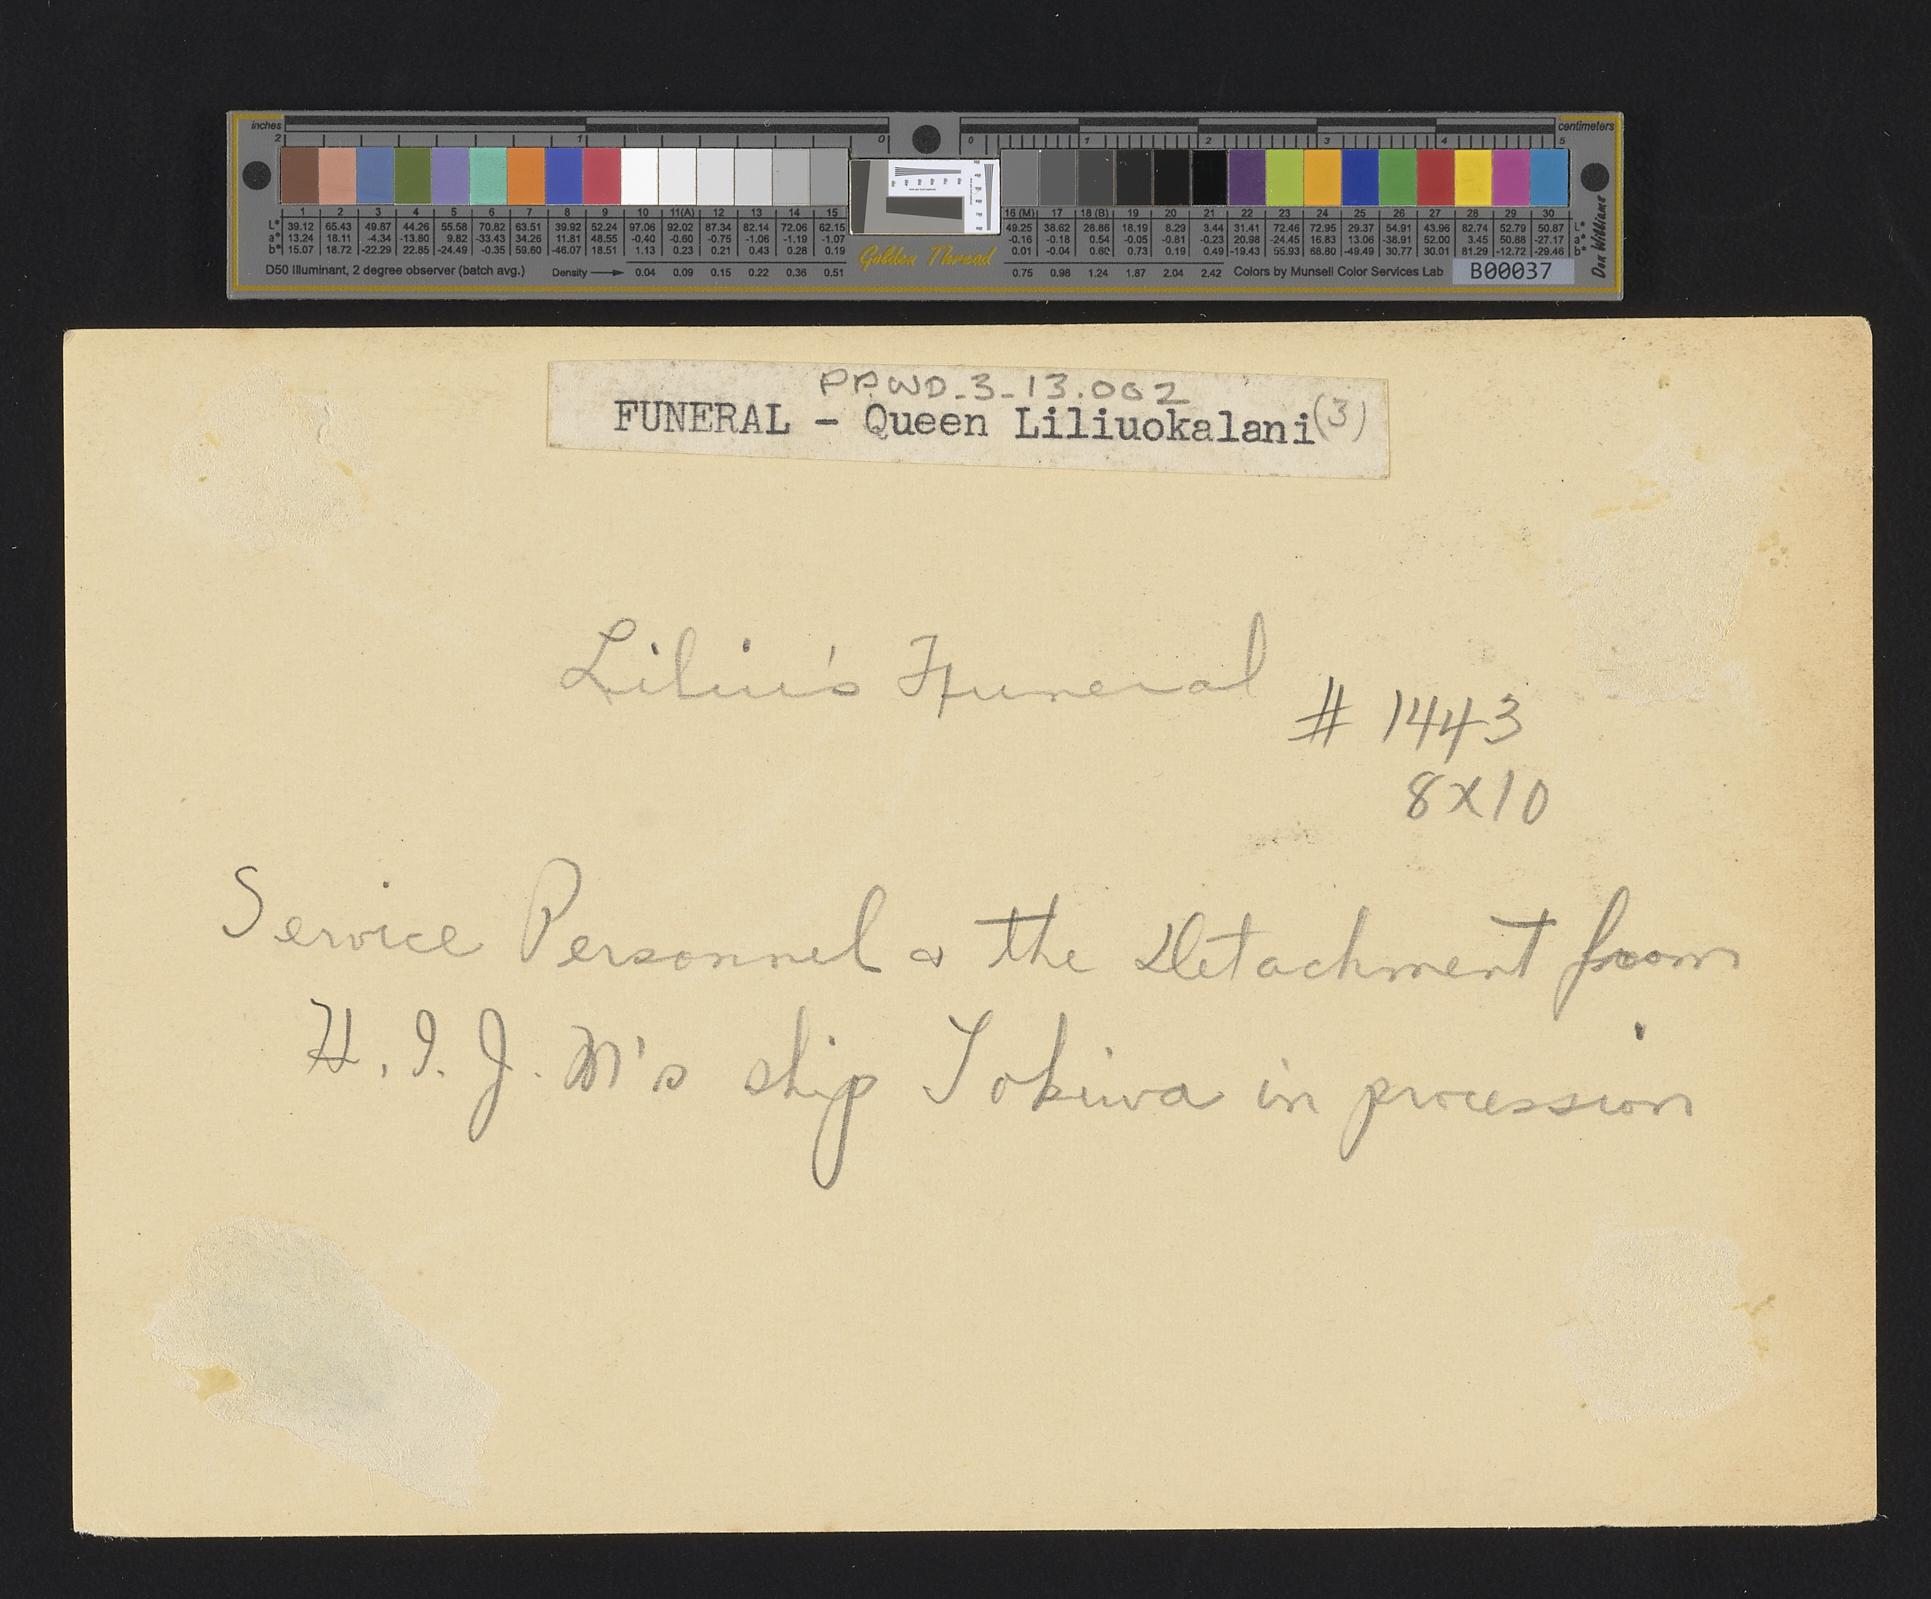 inches
centimeters
2 1 0 0 1 2 3 4 5
1 2 3 4 5 6 7 8 9 10 11(A) 12 13 14 15 16 (M) 17 18 (B) 19 20 21 22 23 24 25 26 27 28 29 30
L* 39.12 65.43 49.87 44.26 55.58 70.82 63.51 39.92 52.24 97.06 92.02 87.34 82.14 72.06 62.15 49.25 38.62 28.86 18.19 8.29 3.44 31.41 72.46 72.95 29.37 54.91 43.96 82.74 52.79 50.87 L*
a* 13.24 18.11 -4.34 -13.80 9.82 -33.43 34.26 11.81 48.55 -0.40 -0.60 -0.75 -1.06 -1.19 -1.07 -0.16 -0.18 0.54 -0.05 -0.81 -0.23 20.98 -24.45 16.83 13.06 -38.91 52.00 3.45 50.88 -27.17 a*
b* 15.07 18.72 -22.29 22.85 -24.49 -0.35 59.60 -46.07 18.51 1.13 0.23 0.21 0.43 0.28 0.19 0.01 -0.04 0.60 0.73 0.19 0.49 -19.43 55.93 68.80 -49.49 30.77 30.01 81.29 -12.72 -29.46 b*
D50 Illuminant, 2 degree observer (batch avg.) Density 0.04 0.09 0.15 0.22 0.36 0.51 Golden Thread 0.75 0.98 1.24 1.87 2.04 2.42 Colors by Munsell Color Services Lab B00037
Don Williams
PPWD_3-13.002
FUNERAL - Queen Liliuokalani (3)
Liliu's Funeral
# 1443
8x10
Service Personnel & the Detachment from
H. I. J. M's ship Tokiwa in procession